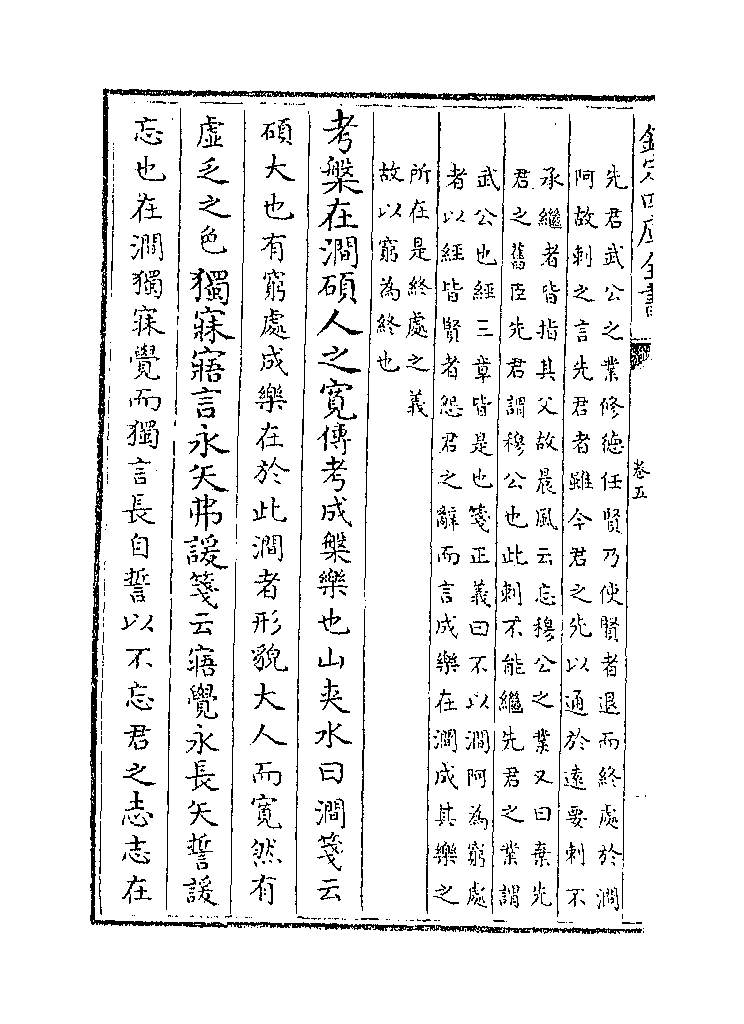 欽定四庫全書
卷五
先君武公之業修德任賢乃使賢者退而終處於澗
阿故刺之言先君者雖今君之先以通於遠要刺不
承繼者皆指其父故晨風云忘穆公之業又曰棄先
君之舊臣先君謂穆公也此刺不能繼先君之業謂
武公也經三章皆是也箋正義曰不以澗阿為窮處
者以經皆賢者怨君之辭而言成樂在澗成其樂之
所在是終處之義
故以窮為終也
考槃在澗碩人之寬傳考成槃樂也山夾水曰澗箋云
碩大也有窮處成樂在於此澗者形貌大人而寬然有
虛乏之色獨寐寤言永矢弗諼箋云寤覺永長矢誓諼
忘也在澗獨寐覺而獨言長自誓以不忘君之惡志在